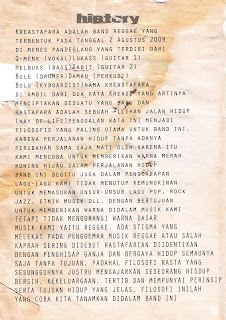 history
KREASTAFARA ADALAH BAND REGGAE YANG
TERBENTUK PADA TANGGAL 2 AGUSTUS 2009
DI MENES PANDEGLANG YANG TERDIRI DARI
Q-MENK (VOKAL) LUKASS (GUITAR 1)
YELBUKS (BASS) SABIT (GUITAR 2)
BULE (DRUMER) DAMAN (PERKUSI)
BOLU (KYBOARDIST) NAMA KREASTAFARA
DI AMBIL DARI KATA KREASI YANG ARTINYA
MENCIPTAKAN SESUATU YANG BARU DAN
RASTAFARA ADALAH PILIHAN JALAN HIDUP
(WAY OF LIFE) SEGALAH KATA INI MENJADI
FILOSOPIS YANG PALING UTAMA UNTUK BAND INI.
KARENA PERJALANAN HIDUP TANPA ADANYA
PERUBAHAN SAMA SAJA MATI OLEH KARENA ITU
KAMI MENCOBA UNTUK MEMBERIKAN WARNA MERAH
KUNING HIJAU DALAM PERJALANAN HIDUP
BAND INI BEGITU JUGA DALAM PENGGARAPAN
LAGU-LAGU KAMI TIDAK MENUTUP KEMUNGKINAN
UNTUK MEMASUKAN UNSUR-UNSUR LAGU POP, ROCK
JAZZ, ETNIK MUSIK DLL. DENGAN BERTUJUAN
UNTUK MEMBERIKAN WARNA DIDALAM MUSIK KAMI
TETAPI TIDAK MENGURANGI WARNA DASAR
MUSIK KAMI YAITU REGGAE. ADA STIGMA YANG
MELEKAT PADA PENGGEMAR MUSIK REGGAE ATAU SALAH
KAPRAH SERING DISEBUT RASTAFARIAN DIIDENTIKAN
DENGAN PENGHISAP GANJA DAN BERGAYA HIDUP SEMAUNYA
SAJA TANPA TUJUAN, PADAHAL FILOSOFI RASTA YANG
SESUNGGUHNYA JUSTRU MENGAJARKAN SESEORANG HIDUP
BERSIH, KEKELUARGAAN, TERTIB DAN MEMPUNYAI PERINSIP
SERTA TUJUAN HIDUP YANG JELAS, FILOSOFI INILAH
YANG COBA KITA TANAMKAN DIDALAM BAND INI